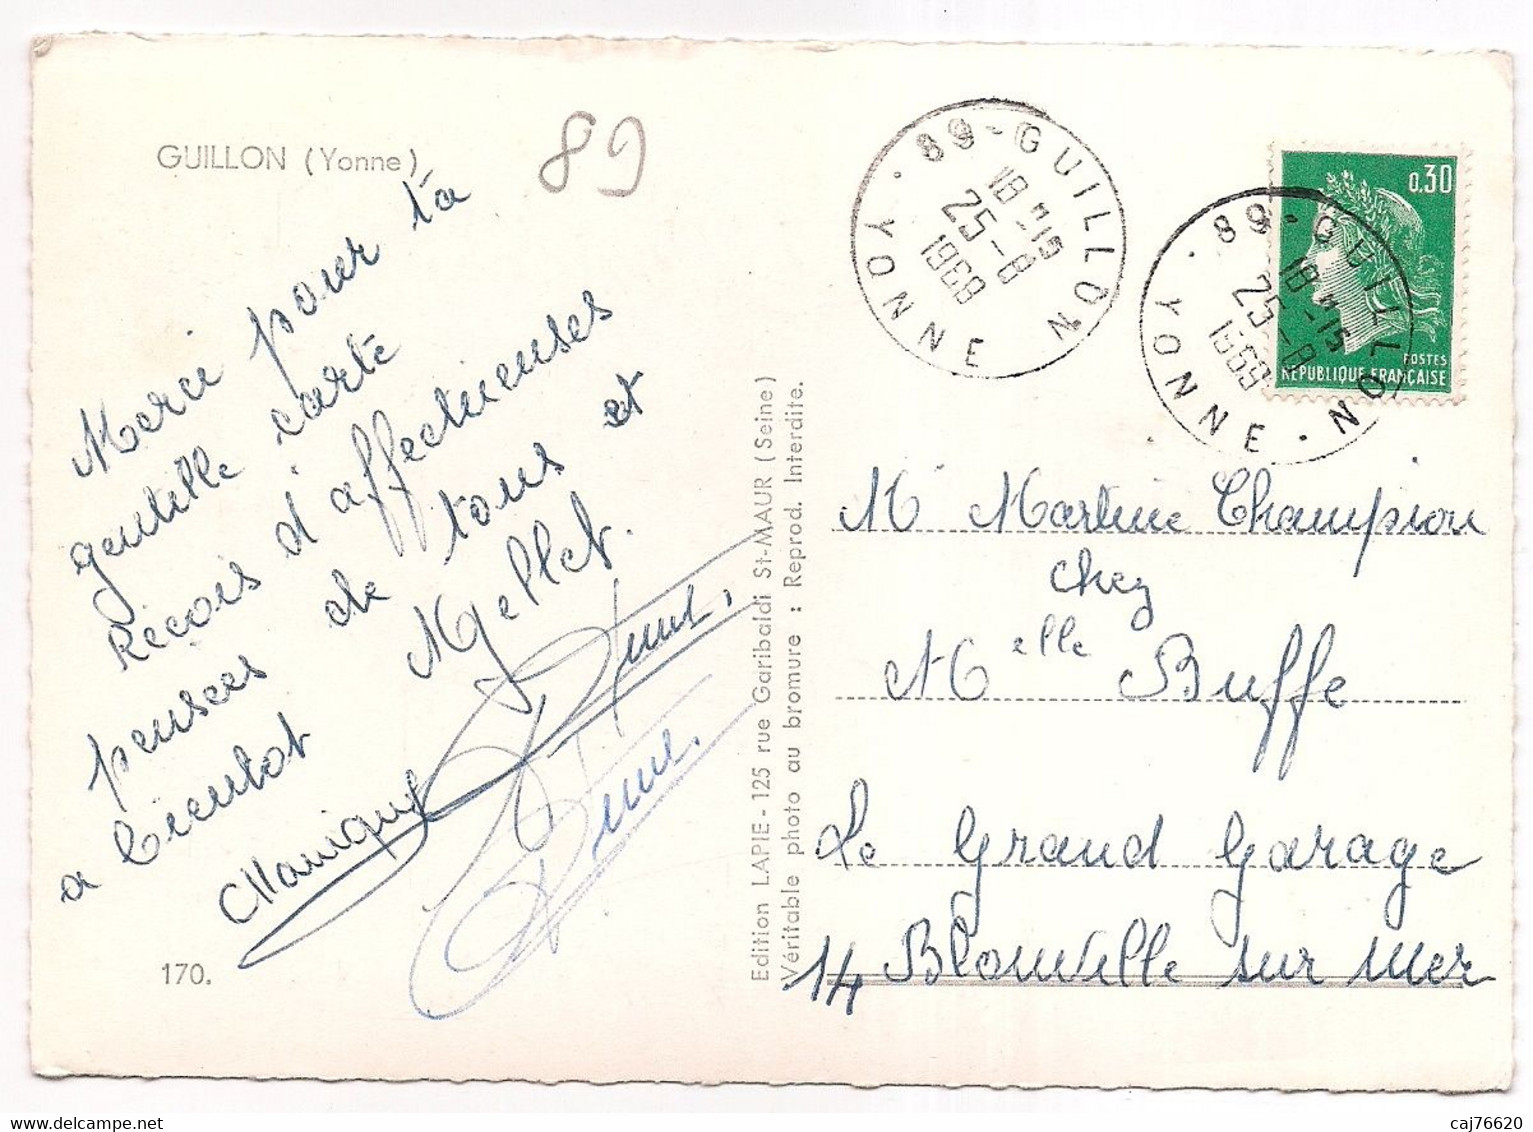 GUILLON (Yonne)
89
Merci pour ta
gentille carte
Reçois d'affectueuses
pensées de tous et
a bientot Myellet.
170.
Edition LAPIE - 125 rue Garibaldi St-MAUR (Seine)
Véritable photo au bromure : Reprod. Interdite.
89-GUILLON
18H15
25-8
1969
YONNE
89-GUILLON
18H15
25-8
1969
YONNE
0,30
POSTES
REPUBLIQUE FRANÇAISE
M Martine Champion
chez
Melle Buffe
Le Grand Garage
14 Blonville sur mer
caj76620